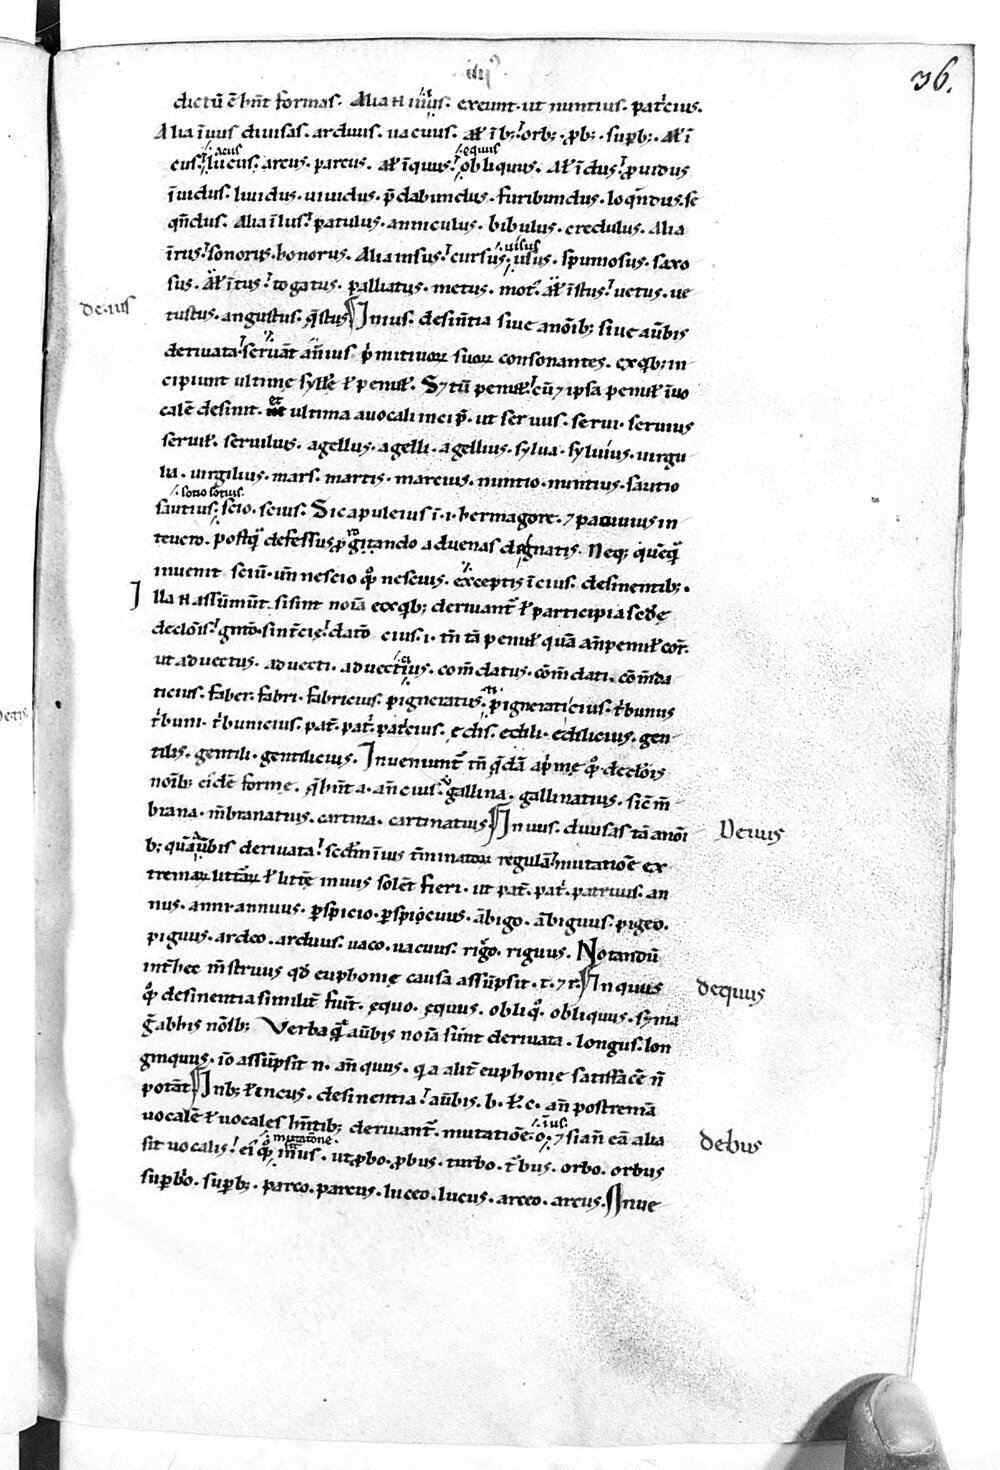 iiii.
36.
dictū ē hn̄t formas. Alia n̄ iuus. exeunt. ut nuntius. patͥcius.
Alia īuus diuisas. arduus. uacuus. aƚ īb; orb; ꝓb; supb; Aƚ ī
acus equus
cus. lucus. arcus. parcus. aƚ īquus. obliquus. Aƚ īdus. ꝓuidus
īuidus. liuidus. uiuidus. p̄dabundus. furibundus. loq̄ndus. se
qn̄dus. Alia īlus. patulus. anniculus. bibulus. credulus. Alia
uisus
īrus. sonorus. honorus. Alia insus. cursus. usus. spumosus. saxo
sus. Aƚ ītus. togatus. palliatus. metus. mot᷒. aƚ īstus. uetus. ue
de .ius
tustus. angustus. q̄stus. In ius. desinētia siue anoīb; siue aub̄is
deriuata. seruāt an̄ ius pͥmitiuoꝝ suoꝝ consonantes. exqb; in
cipiunt ultimę sylƚe ƚ penuƚ. S; tū penuƚ. cū ⁊ ipsa penuƚ īuo
et
calē desinit. ultima auocali incip̄. ut seruus. serui. seruius
seruiƚ. seruilius. agellus. agelli. agellius. sylua. syluius. uirgu
la. uirgilius. mars. martis. marcius. nuntio. nuntius. sautio
sotio sotius.
sautius. scio. scius. Sic apuleius ī .i. hermagore. ⁊ pacuuius in
teucro. postqͣ defessus ꝓgitando aduenas dignatis. Neq; quēqͣ
inuenit sciū. un̄ nescio qͦ nescius. exceptis ī cius. desinentib;.
Illa n̄ assūmūt. si sint noīa ecxqb; deriuant᷒ ƚ participia sed̄e
declōis. gn̄to. sin tͨcię. datō cius. i. tn̄ tā penuƚ quā an̄penuƚ cor͛.
ut aduectus. aduecti. aduectius. com̄datus. com̄dati. com̄da
ti
ticius. faber. fabri. fabricius. pigneratus. pigneraticius. tͥbunus
tͥbuni. tͥbunicius. pat͛. patͥ. patͥcius. ędil̄s. edili. edilicius. gen
tilis. gentili. gentilicius. Inueniunt᷒ tn̄ q̄dā apͥmę qͦ. declōis
noīb; eidē forme. q̄ hn̄t a. an̄ cius. ut gallina. gallinatius. sic m̄
brana. m̄branatius. cartina. cartinatius. In uus. diuisas tā anoī
Deuus
b; quā auƀis deriuata. sedm̄ īius t͛minatoꝝ regulā. mutatiōe ex
tremaꝝ litt͛aꝝ ƚ litt͛ę inuus solēt fieri. ut pat͛. patͥ. patruus. an
nus. anni. annuus. ꝑspicio. ꝑspicuus. ābigo. ābiguus. pigeo.
piguus. ardeo. arduus. uaco. uacuus. rigo. riguus. Notandū
int͛ hec m̄struus qd̄ euphonię causa assūpsit .t. ⁊ r. In quus
dequus
qͦ desinentia similit͛ fiūt. ęquo. ęquus. obliqͦ. obliquus. syma
gͣabhis nōib; Verba q̄ auƀis noīa sunt deriuata. longus. lon
ginquus. īo assūpsit n. an̄ quus. qͣ alit͛ euphonie satisfacē n̄
potāt. Inb; ƚ incus. desinentia. auƀis. b. ƚ. c. an̄ postremā
ī us.
uocalē ƚ uocales hn̄tib; deriuant᷒. mutatiōe. o. ⁊ si an̄ eā alia
debus
mutatōne.
sit uocalis. ei qͦ. in us. ut ꝓbo. ꝓbus. turbo. tͥbus. orbo. orbus
supbo. supb;. parco. parcus. luceo. lucus. arceo. arcus. Inue